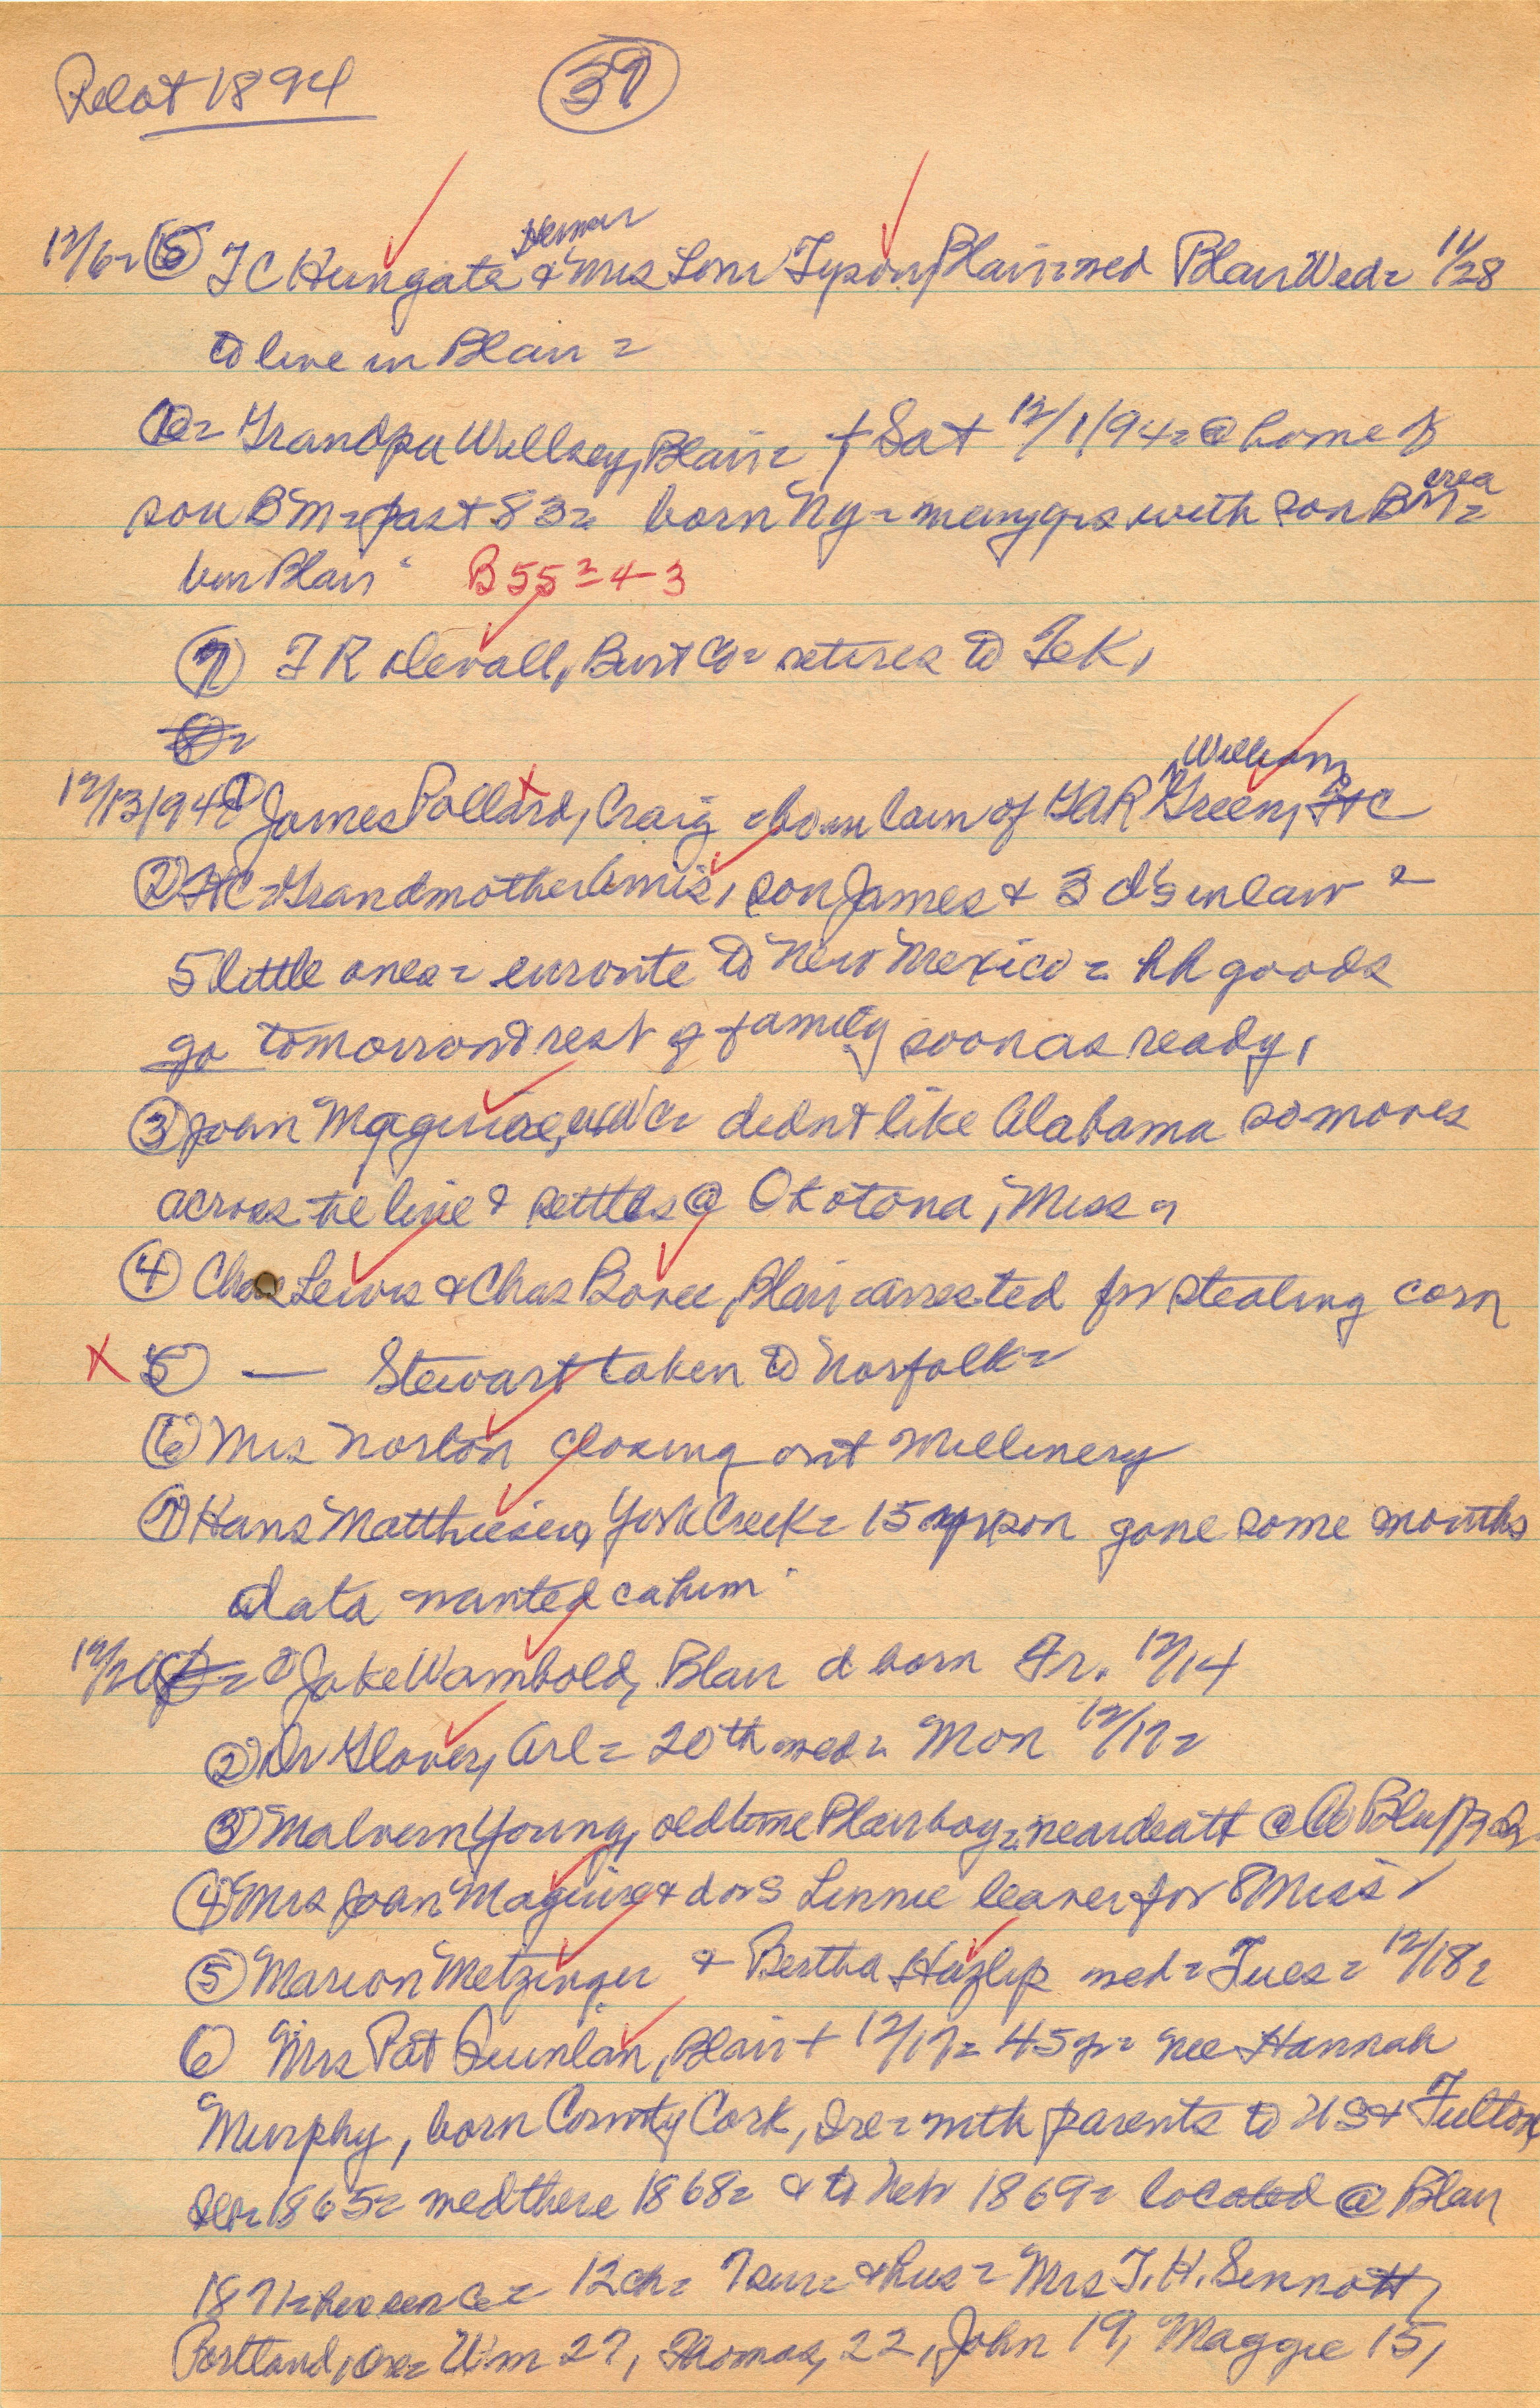 Pilot 1894 37
12/6= ⑤ TC Hungate & Mrs Lom Tyson, Blair= med Blair Wed= 11/28
to live in Blair =
⑥= Grandpa Willsey, Blair= † Sat 12/1/94= @ home of
son BM= past 83= born NY= many yrs with son BM= area
in Blair B 55=4-3
⑦ T R Clevall, Burt Co= retires to Tek,
⑧=
12/13/94= ① James Pollard, Craig = bro in law of GAR William Green, HC
② HC= Grandmother Amis, son James & 3 d's in law =
5 little ones= enroute to New Mexico= hh goods
go tomorrow & rest of family soon as ready,
③ John Maguire, didnt like Alabama so moves
across the line & settles @ Okotona, Miss=
④ Chas Lewis & Chas Bovee, Blair= arrested for stealing corn
X ⑤ — Stewart taken to Norfolk=
⑥ Mrs Norton closing out Millinery
⑦ Hans Matthiesen, York Creek= 15 yr son gone some months
data wanted
① Jake Wambold, Blair d born Fr. 12/14
② Dr Glover, Arl= 20th wed= Mon 12/17=
③ Malvern Young, oldtime Blair boy= near death @ Co Bluffs
④ Mrs John Maguire & dor S Linnie leaves for Miss
⑤ Marion Metzinger & Bertha Hazlip med= Tues= 12/18=
⑥ Mrs Pat Quinlan, Blair † 12/17= 45 yr= nee Hannah
Murphy, born County Cork, Ire= with parents to US & Fulton
Ill= 1865= med there 1868= & to Neb 1869= located @ Blair
1871= here since= 12 ch= 7 sur= & hus= Mrs T. H. Sennott,
Portland, Ore= Wm 27, Thomas, 22, John 19, Maggie 15,